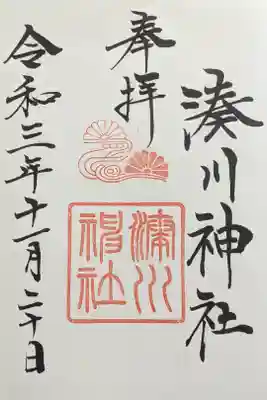 湊川神社
奉拝
湊川神社
令和三年十一月二十日